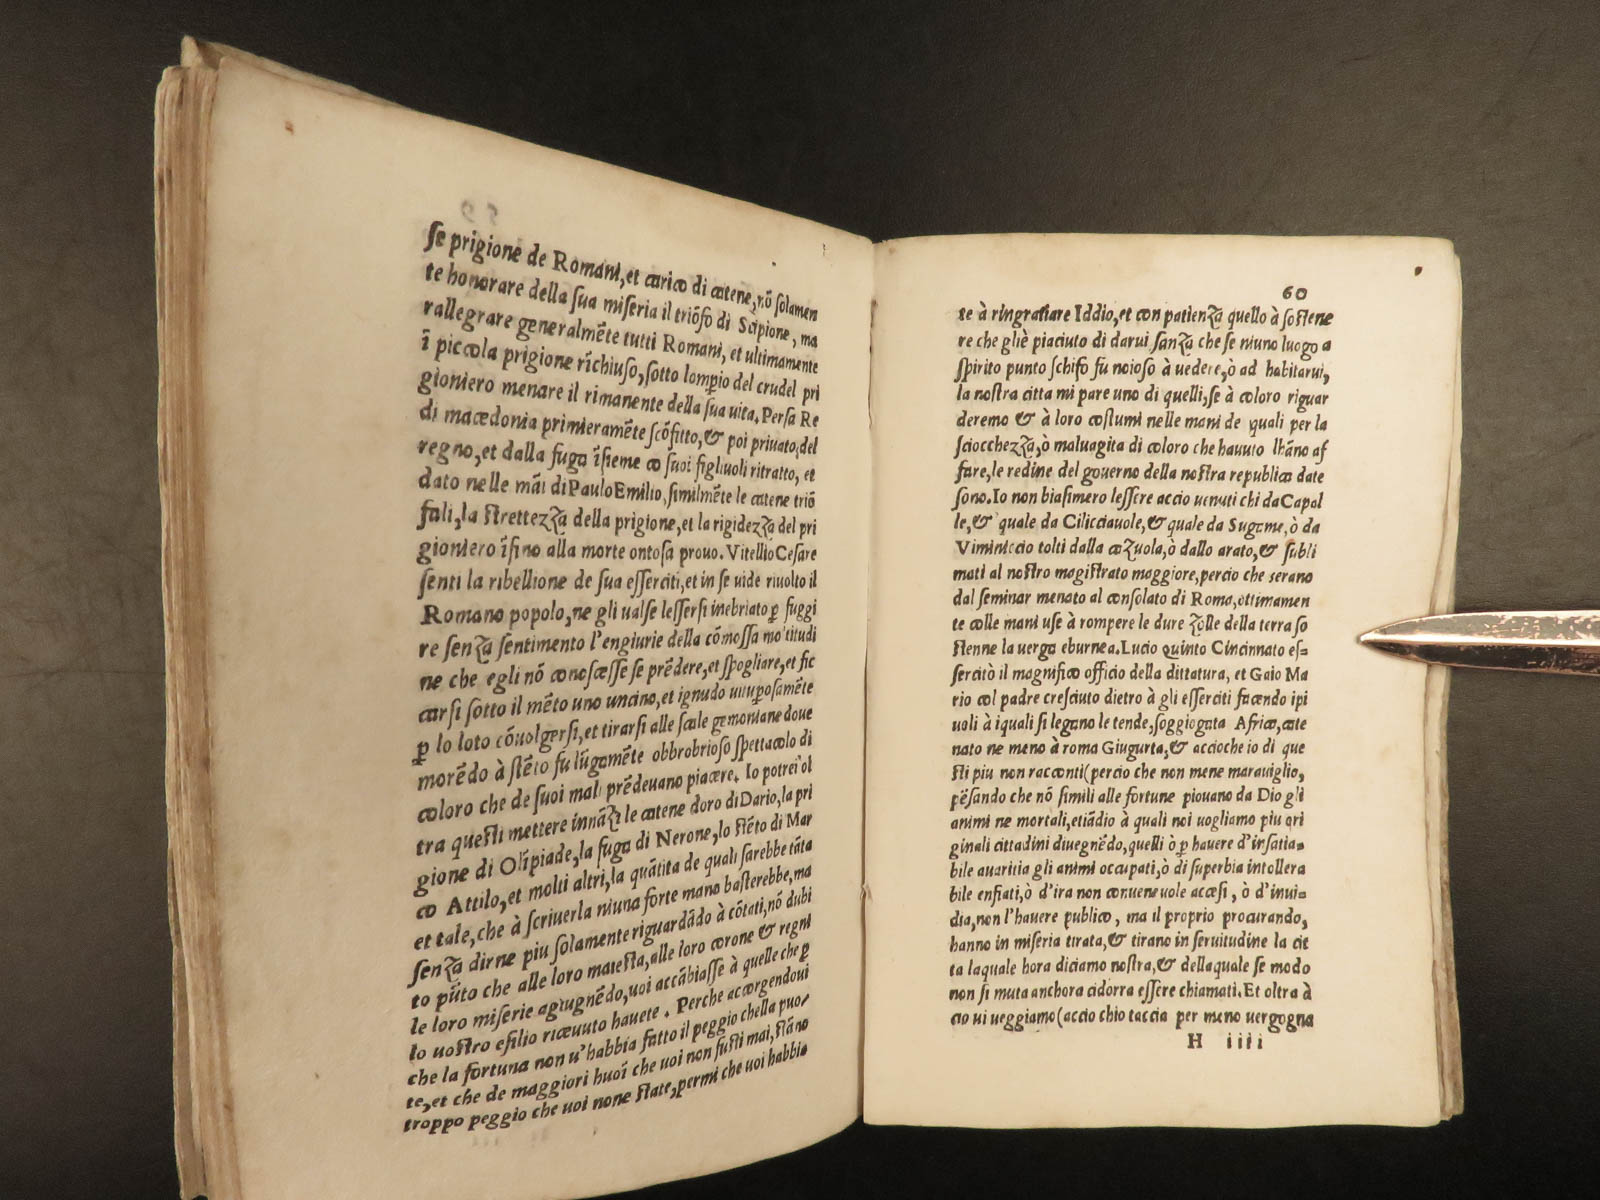 ſe prigione de Romani, et carico di catene, nō ſolamen
te honorare della ſua miſeria il triōfo di Scipione, ma
rallegrare generalmēte tutti Romani, et ultimamente
ī piccola prigione rīchiuſo, ſotto lomꝑio del crudel pri
gioniero menare il rimanente della ſua uita. Perſa Re
di macedonia primieramēte ſcōfitto, & poi priuato del
regno, et dalla fuga īſieme co ſuoi figliuoli ritratto, et
dato nelle māi di Paulo Emilio, ſimilmēte le catene triō
fali, la ſtrettezza della prigione, et la rigidezza del pri
gioniero īſino alla morte ontoſa prouo. Vitellio Ceſare
ſenti la ribellione de ſua eſſerciti, et in ſe uide riuolto il
Romano popolo, ne gli ualſe leſſerſi inebriato ꝑ fuggi
re ſenza ſentimento l'engiurie della cōmoſſa moltitudi
ne che egli nō conoſceſſe ſe prēdere, et ſpogliare, et fic
carſi ſotto il mēto uno uncino, et ignudo uituꝑoſamēte
ꝑ lo loto cōuolgerſi, et tirarſi alle ſcale gemoniane doue
morēdo à ſtēto fu lūgamēte obbrobrioſo ſpettacolo di
coloro che de ſuoi mali prēdeuano piacere. Io potrei ol
tra queſti mettere innāzi le catene doro di Dario, la pri
gione di Olīpiade, la fuga di Nerone, lo ſtēto di Mar
co Attilo, et molti altri, la quātita de quali ſarebbe tāta
et tale, che à ſcriuerla niuna forte mano baſterebbe, ma
ſenza dirne piu ſolamente riguardādo à cōtati, nō dubi
to pūto che alle loro mateſta, alle loro corone & regni
le loro miſerie agiugnēdo, uoi accābiaſſe à quelle che ꝑ
lo uoſtro eſilio riceuuto hauete. Perche accorgendoui
che la fortuna non u'habbia fatto il peggio chella puo
te, et che de maggiori huoī che uoi non fuſti mai, ſtāno
troppo peggio che uoi none ſtate, permi che uoi habbia
60
te à ringratiare Iddio, et con patienza quello à ſoſtene
re che gliè piaciuto di darui ſanza che ſe niuno luogo a
ſpirito punto ſchifo fu noioſo à uedere, ò ad habitarui,
la noſtra citta mi pare uno di quelli, ſe à coloro riguar
deremo & à loro coſtumi nelle mani de quali per la
ſciocchezza, ò maluagita di coloro che hauuto lhāno af
fare, le redine del gouerno della noſtra republica date
ſono. Io non biaſimero leſſere accio uenuti chi da Capal
le, & quale da Cilicciauole, & quale da Sugame, ò da
Viminiccio tolti dalla cazuola, ò dallo arato, & ſubli
mati al noſtro magiſtrato maggiore, percio che serano
dal ſeminar menato al conſolato di Roma, ottimamen
te colle mani uſe à rompere le dure zolle della terra so
ſtenne la uerga eburnea. Lucio quinto Cincinnato eſ=
ſercitò il magnifico officio della dittatura, et Gaio Ma
rio col padre creſciuto dietro à gli eſſerciti facendo i pi
uoli à iquali ſi legano le tende, ſoggiogata Africa, cate
nato ne meno à roma Giugurta, & accioche io di que
ſti piu non racconti (percio che non mene marauiglio,
pēſando che nō ſimili alle fortune piouano da Dio gli
animi ne mortali, etiādio à quali noi uogliamo piu ori
ginali cittadini diuegnēdo, quelli ò ꝑ hauere d'inſatia=
bile auaritia gli animi occupati, ò di ſuperbia intollera
bile enfiati, ò d'ira non conueneuole acceſi, ò d'inui=
dia, non l'hauere publico, ma il proprio procurando,
hanno in miſeria tirata, & tirano in ſeruitudine la cit
ta laquale hora diciamo noſtra, & dellaquale ſe modo
non ſi muta anchora cidorra eſſere chiamati. Et oltra à
cio ui ueggiamo (accio chio taccia per meno uergogna
H iiii